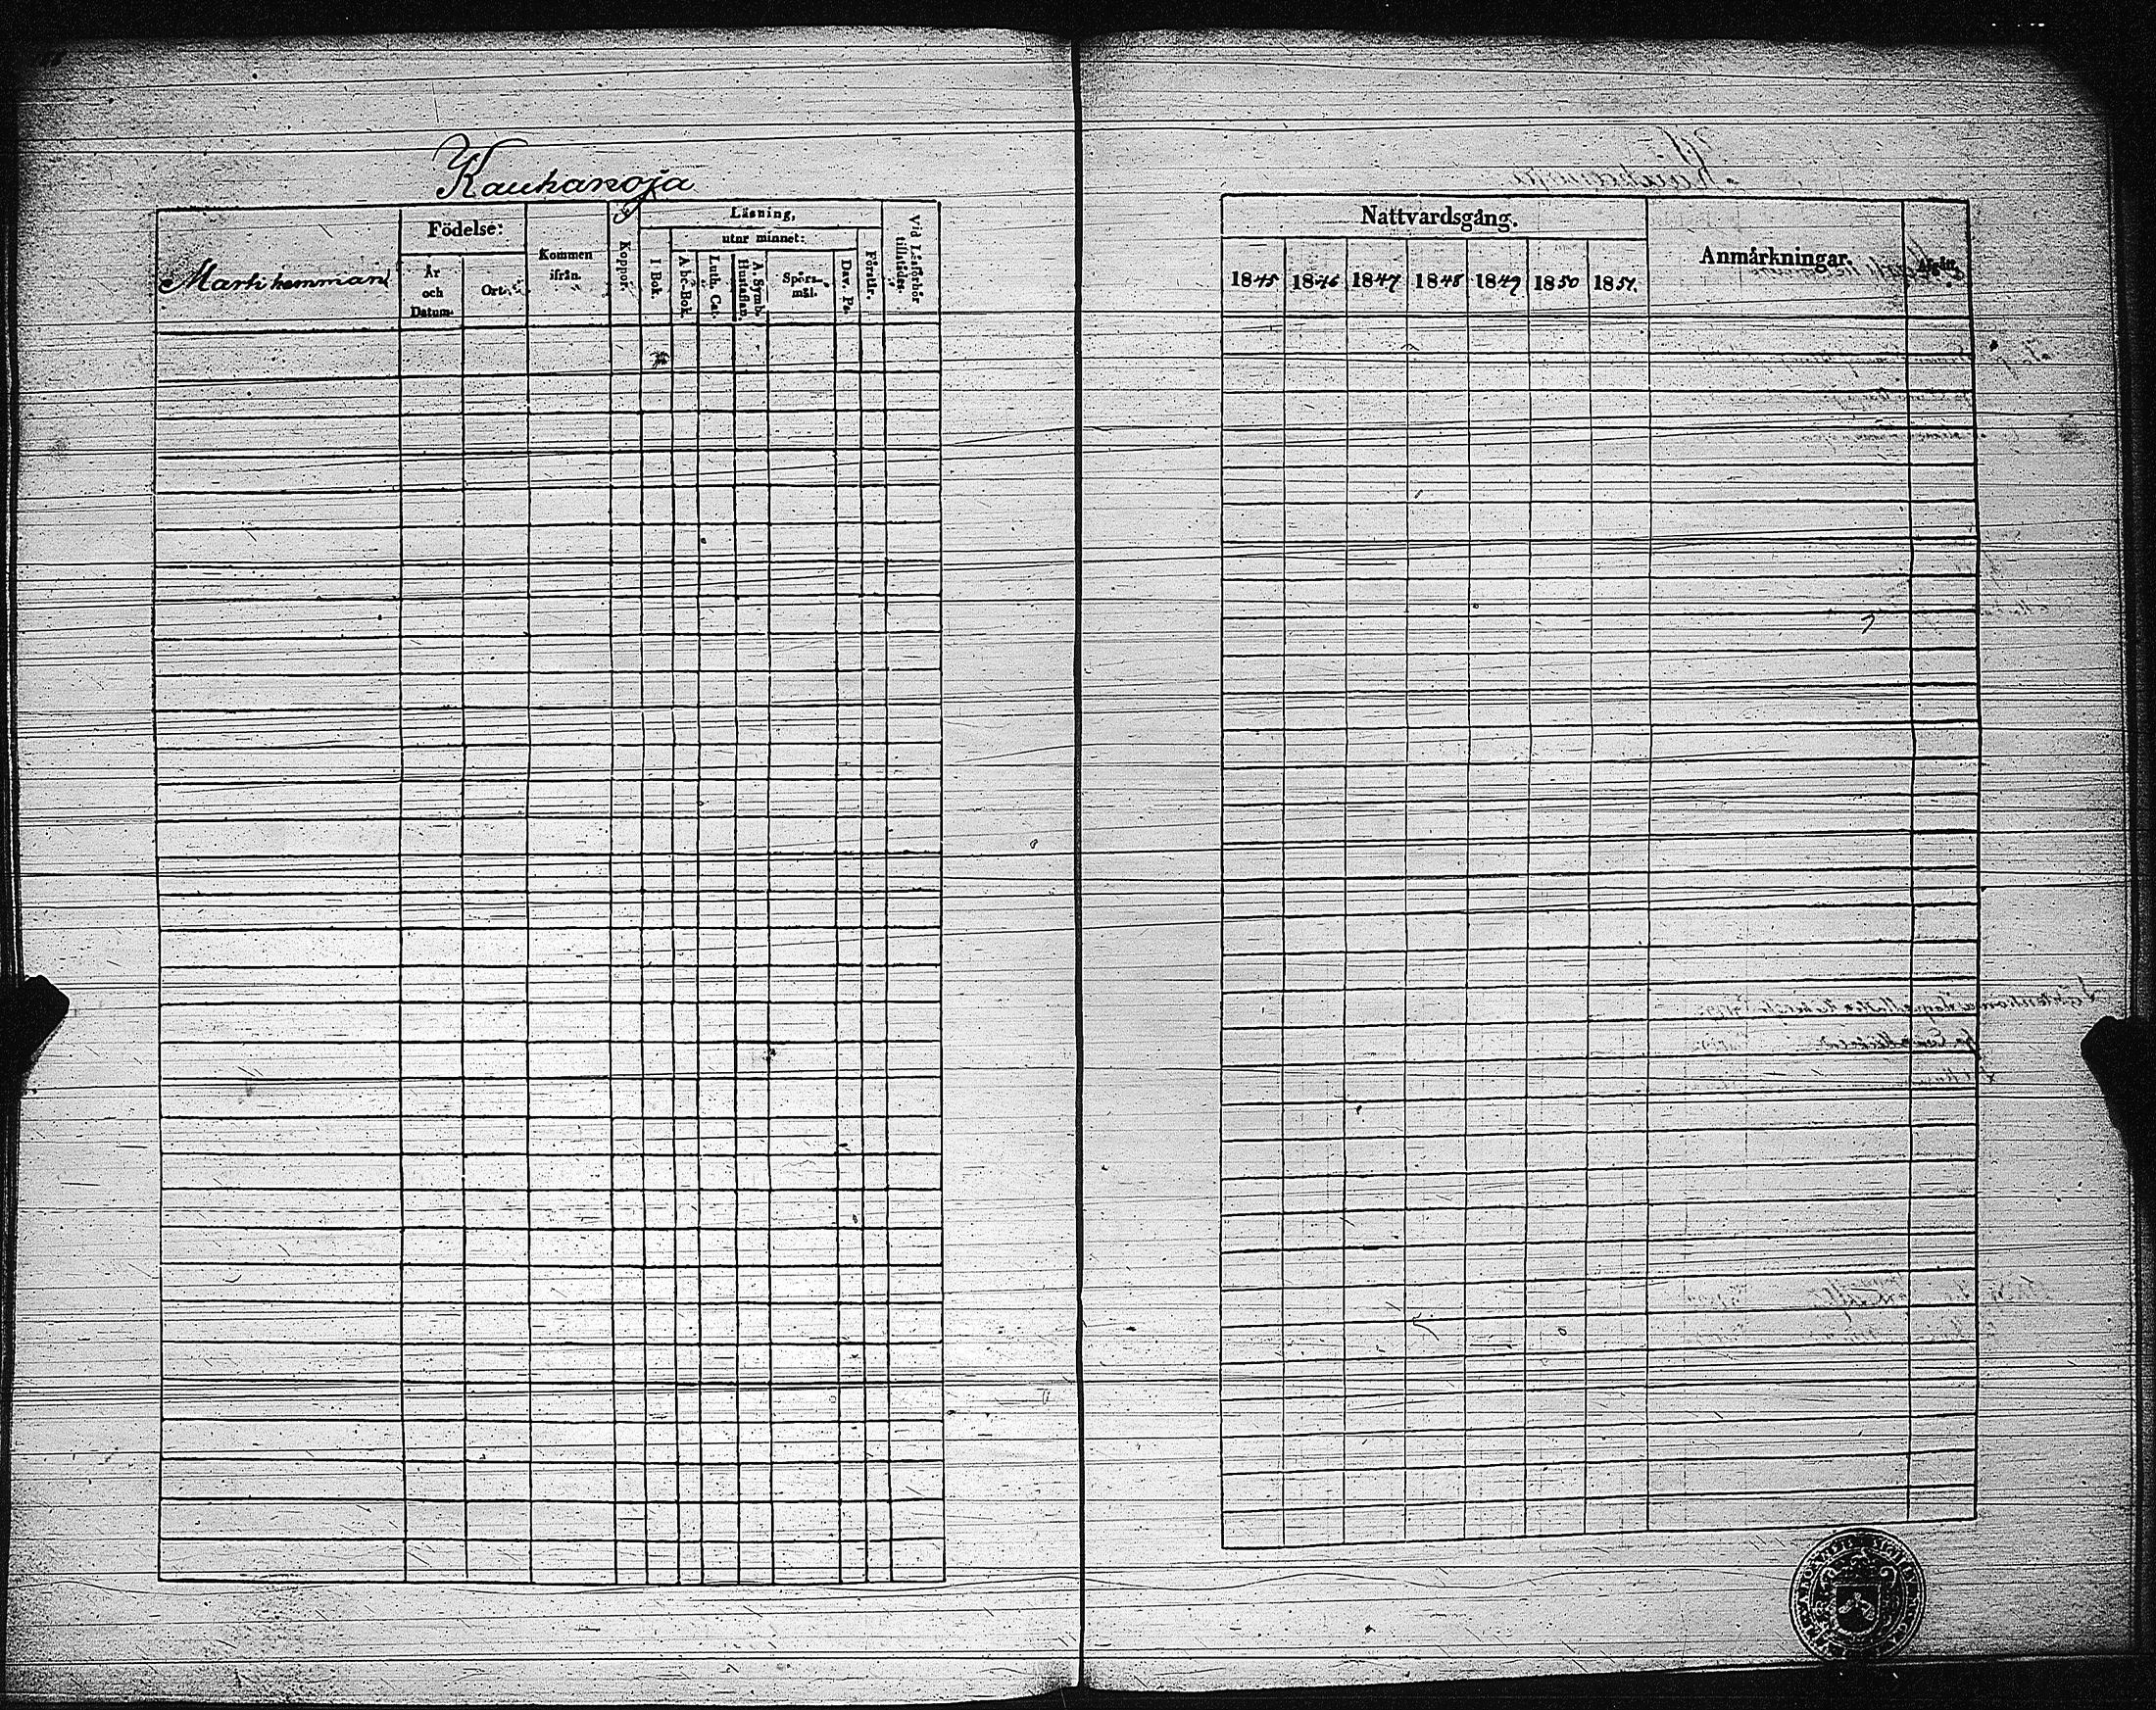 Kauhanoja
Marti hemman
Födelse:
År
och
Datum.
Ort.
Kommen
ifrån.
Koppor.
Läsning,
I Bok.
utur minnet:
A be-Bok.
Luth. Cat.
A. Symb.
Hustaflan
Spörs-
mål.
Dav. Ps.
Förstår.
Vid Läsförhör
tillstädes.
Nattvardsgång.
1845 1846 1847 1848 1849 1850 1851.
Anmärkningar.